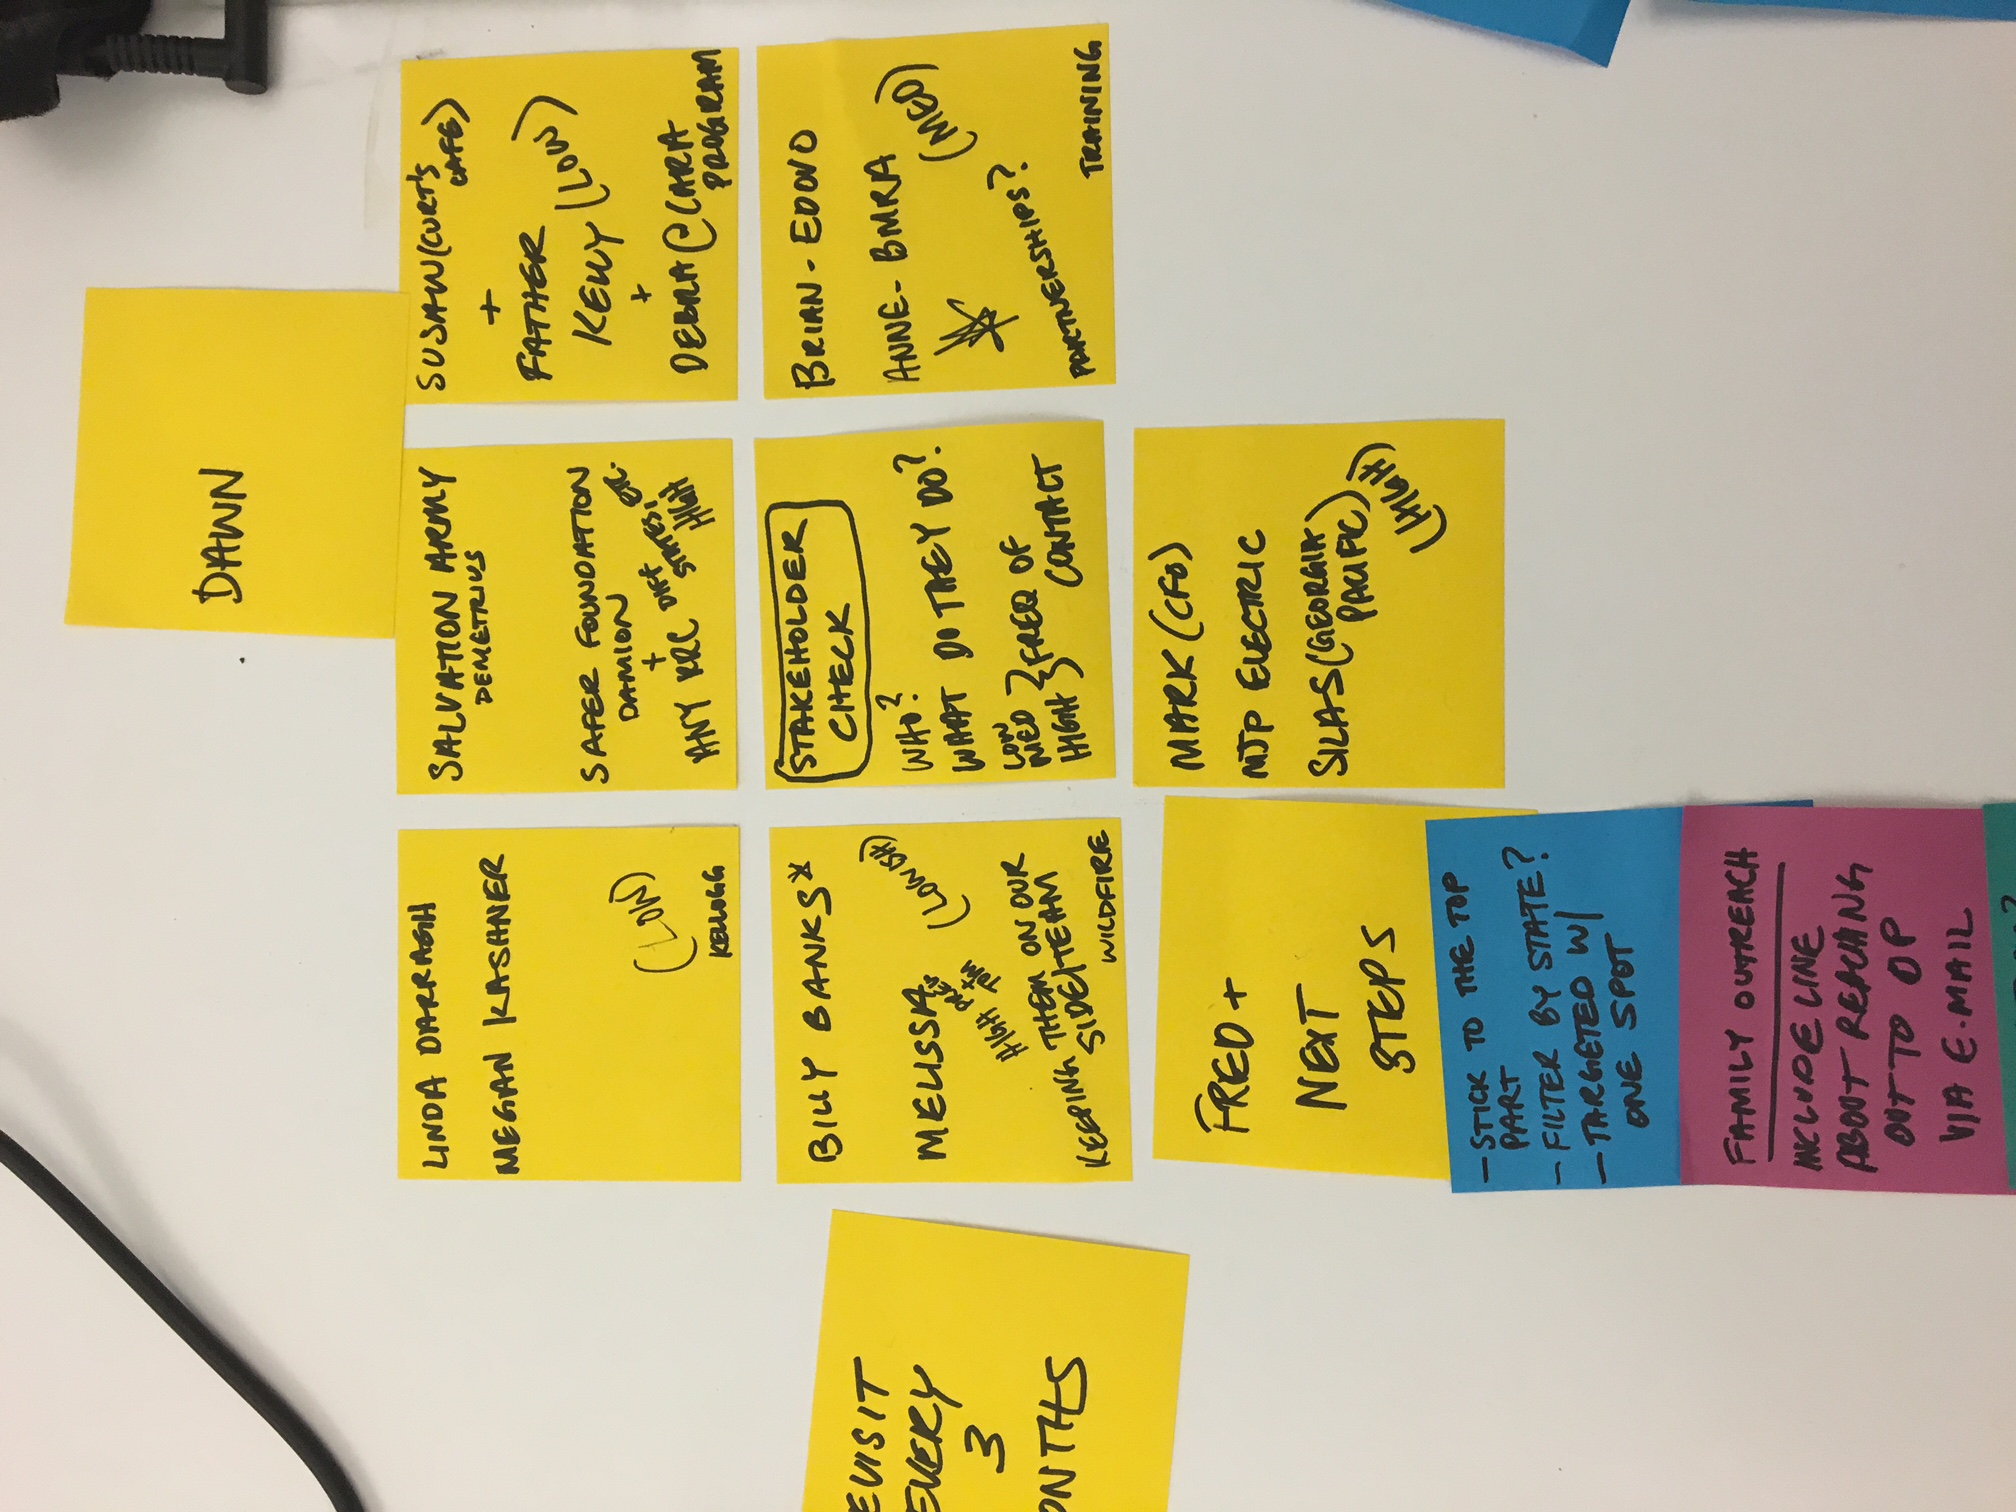 DAWN
LINDA DARRAGH
MEGAN KASHNER
(LOW)
KELLOGG
SALVATION ARMY
DEMETRIUS
SAFER FOUNDATION
DAMION
+
ANY RRC DIFF
STATES, ETC.
HIGH
SUSAN (CURT'S
CAFE)
+
FATHER
KELLY (LOW)
+
DEBRA @ CARA
PROGRAM
EVISIT
EVERY
3
ONTHS
BILLY BANKS*
MELISSA
(LOWISH)
HIGH PREG
+
TOM
KEEPING THEM ON OUR
SIDE/TEAM
WILDFIRE
STAKEHOLDER
CHECK
WHO?
WHAT DO THEY DO?
LOW
MED
HIGH } FREQ OF
CONTACT
BRIAN - EDOVO
ANNE - BMRA
(MED)
PARTNERSHIPS?
TRAINING
FRED +
NEXT
STEPS
MARK (CFO)
MJP ELECTRIC
SILAS (GEORGIA
PACIFIC)
(HIGH)
- STICK TO THE TOP
PART
- FILTER BY STATE?
- TARGETED W/
ONE SPOT
FAMILY OUTREACH
INCLUDE LINE
ABOUT REACHING
OUT TO OP
VIA E-MAIL